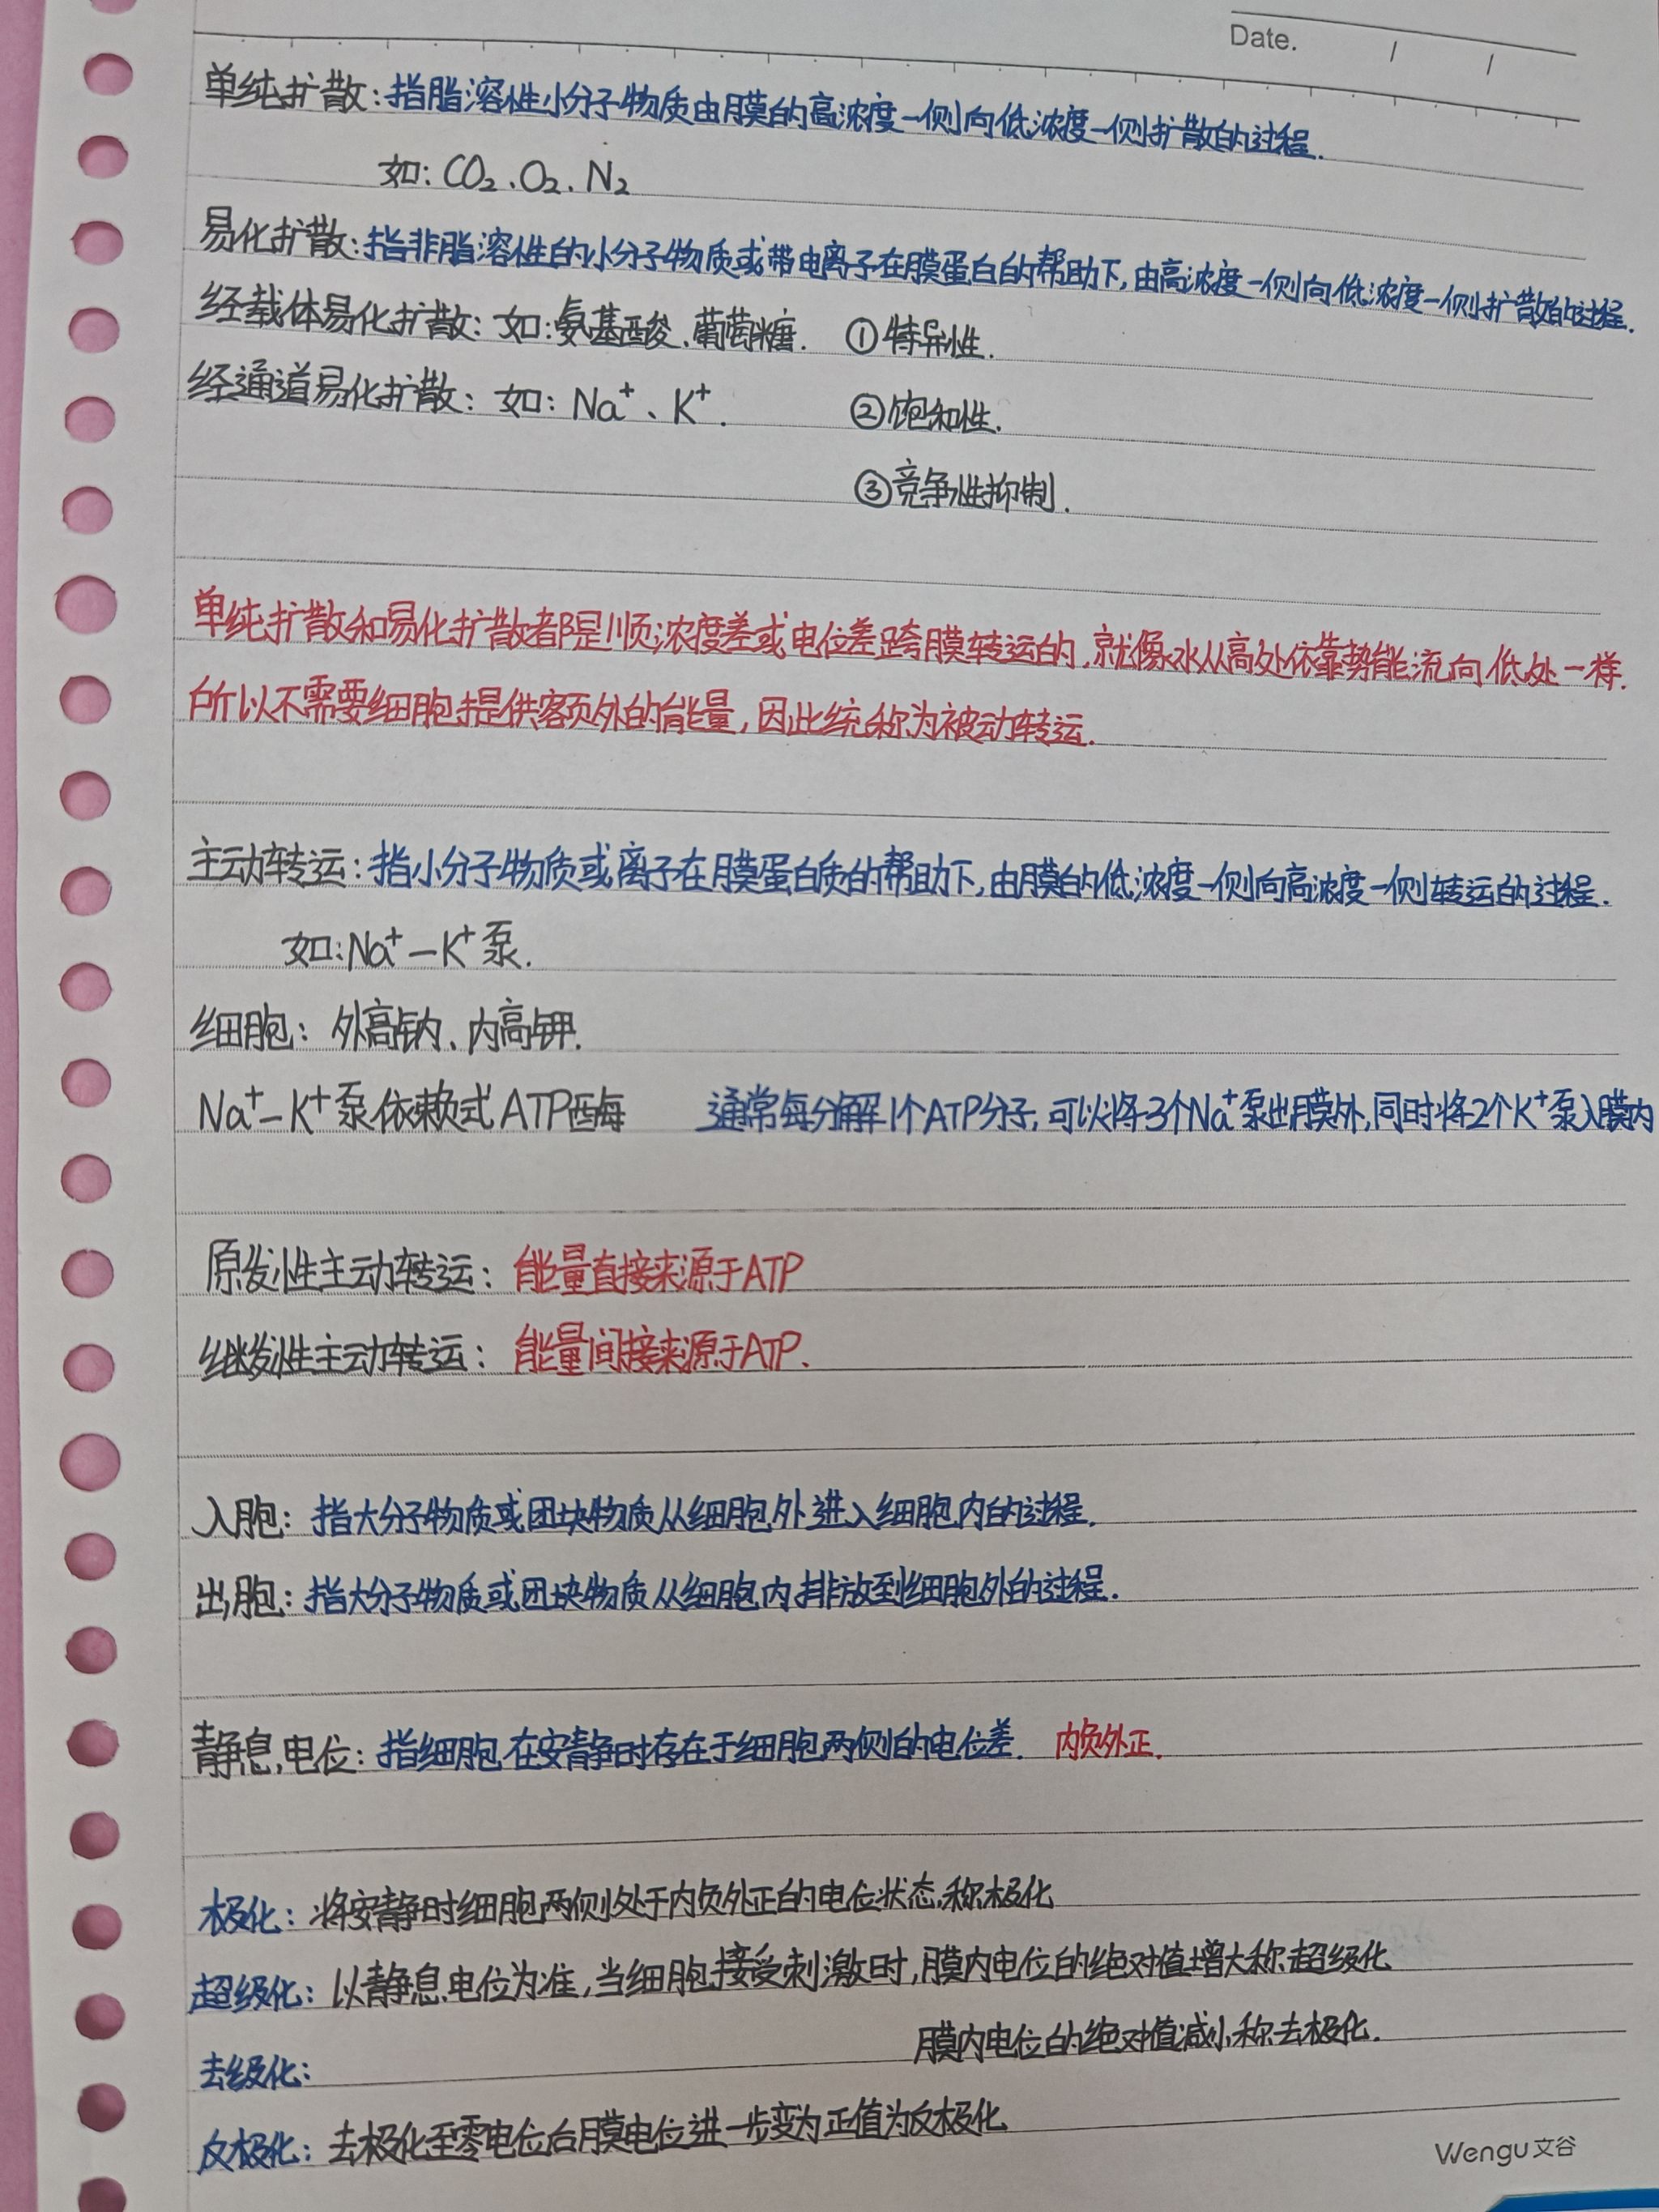 Date. / /
单纯扩散：指脂溶性小分子物质由膜的高浓度一侧向低浓度一侧扩散的过程.
如：CO₂、O₂、N₂
易化扩散：指非脂溶性的小分子物质或带电离子在膜蛋白的帮助下，由高浓度一侧向低浓度一侧扩散的过程.
经载体易化扩散：如：氨基酸、葡萄糖. ①特异性.
经通道易化扩散：如：Na⁺、K⁺. ②饱和性.
③竞争性抑制.
单纯扩散和易化扩散都是顺浓度差或电位差跨膜转运的，就像水从高处依靠势能流向低处一样.
所以不需要细胞提供额外的能量，因此统称为被动转运.
主动转运：指小分子物质或离子在膜蛋白质的帮助下，由膜的低浓度一侧向高浓度一侧转运的过程.
如：Na⁺—K⁺泵.
细胞：外高钠、内高钾.
Na⁺—K⁺泵依赖式ATP酶 通常每分解1个ATP分子，可以将3个Na⁺泵出膜外，同时将2个K⁺泵入膜内
原发性主动转运：能量直接来源于ATP
继发性主动转运：能量间接来源于ATP.
入胞：指大分子物质或团块物质从细胞外进入细胞内的过程.
出胞：指大分子物质或团块物质从细胞内排放到细胞外的过程.
静息电位：指细胞在安静时存在于细胞两侧的电位差. 内负外正.
极化：将安静时细胞两侧处于内负外正的电位状态，称极化
超级化：以静息电位为准，当细胞接受刺激时，膜内电位的绝对值增大称超级化
膜内电位的绝对值减小称去极化.
去级化：
反极化：去极化至零电位后膜电位进一步变为正值为反极化
Wengu文谷